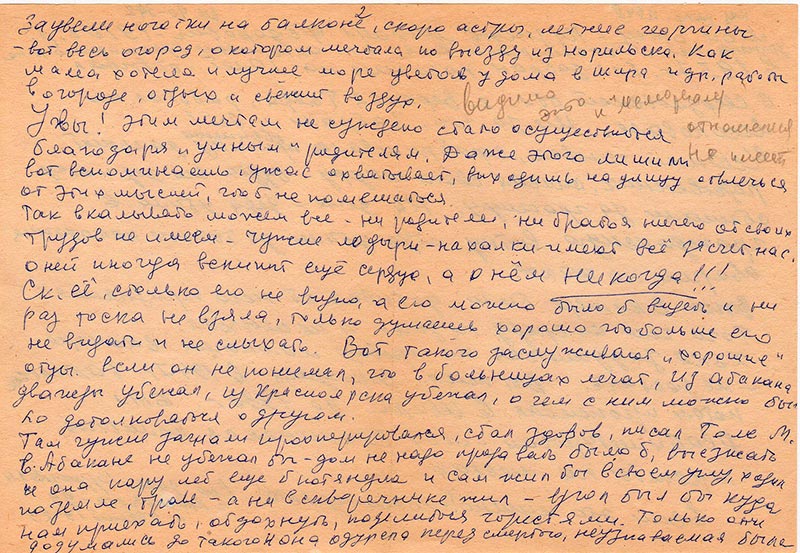 Зацвели ноготки на балконе, скоро астры, летние георгины
- вот весь огород, о котором мечтала по выезду из Норильска. Как
мама хотела и лучше море цветов у дома в Шира и др. работы
в огороде, отдых и свежий воздух.
видимо это к немодному отношения не имеет
Увы! Этим мечтам не суждено стало осуществиться
благодаря „умным" родителям. Даже этого лишили
вот вспоминаешь, ужас охватывает, выходишь на улицу отвлечься
от этих мыслей, чтоб не помешаться.
Так вкалывать можем все - ни родители, ни братья ничего от своих
трудов не имеем - чужие лодыри-нахалки имеют всё за счет нас.
О ней иногда вскипит ещё сердце, а о нём никогда!!!
Ск. её, столько его не видно, а его можно было б видеть и ни
раз тоска не взяла, только думаешь хорошо чтоб больше его
не видать и не слыхать. Вот такого заслуживают „хорошие"
отцы. Если он не понимал, что в больницах лечат, из Абакана
дважды убежал, из Красноярска убежал, о чем с ним можно бы-
ло дотолковаться о другом.
Там чужие загнали прооперировался, стал здоров, писал Толе М.
в Абакане не убежал бы - дом не надо продавать было б, выезжать
и она пару лет еще б потянула и сам жил бы в своем углу, ходил
по земле, траве - а не в скворечнике жил - угол был бы куда
нам приехать, отдохнуть, поделиться горестями. Только они
додумались до такого и она одурела перед смертью, неузнаваемая была